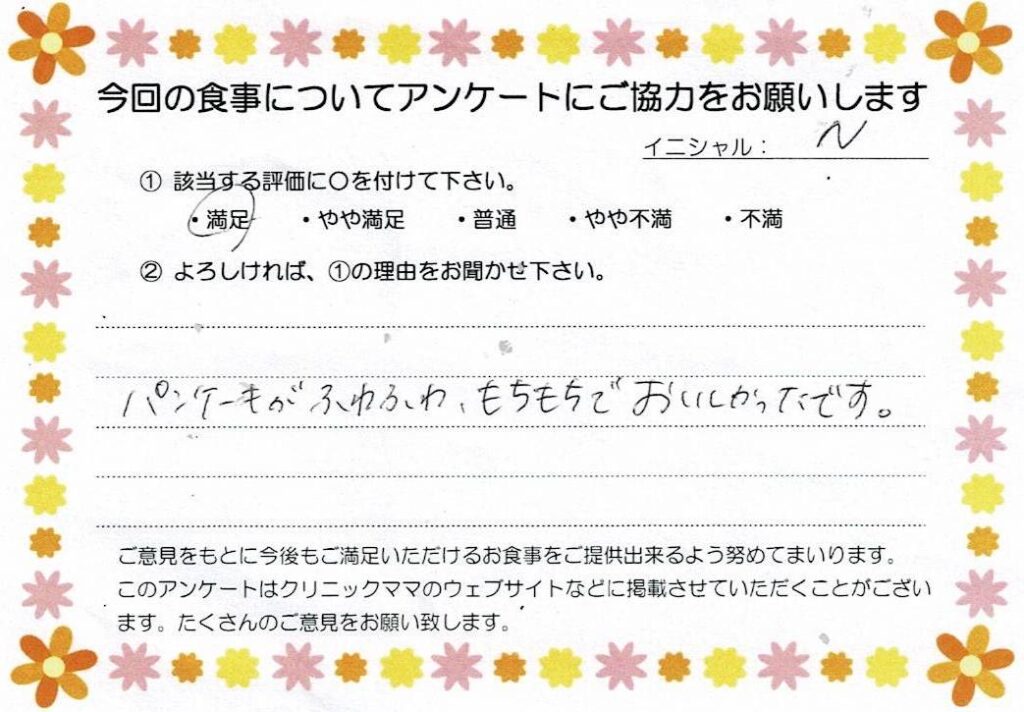 今回の食事についてアンケートにご協力をお願いします
イニシャル： N
① 該当する評価に〇を付けて下さい。
・満足 ・やや満足 ・普通 ・やや不満 ・不満
② よろしければ、①の理由をお聞かせ下さい。
パンケーキがふわふわ、もちもちでおいしかったです。
ご意見をもとに今後もご満足いただけるお食事をご提供出来るよう努めてまいります。
このアンケートはクリニックママのウェブサイトなどに掲載させていただくことがござい
ます。たくさんのご意見をお願い致します。